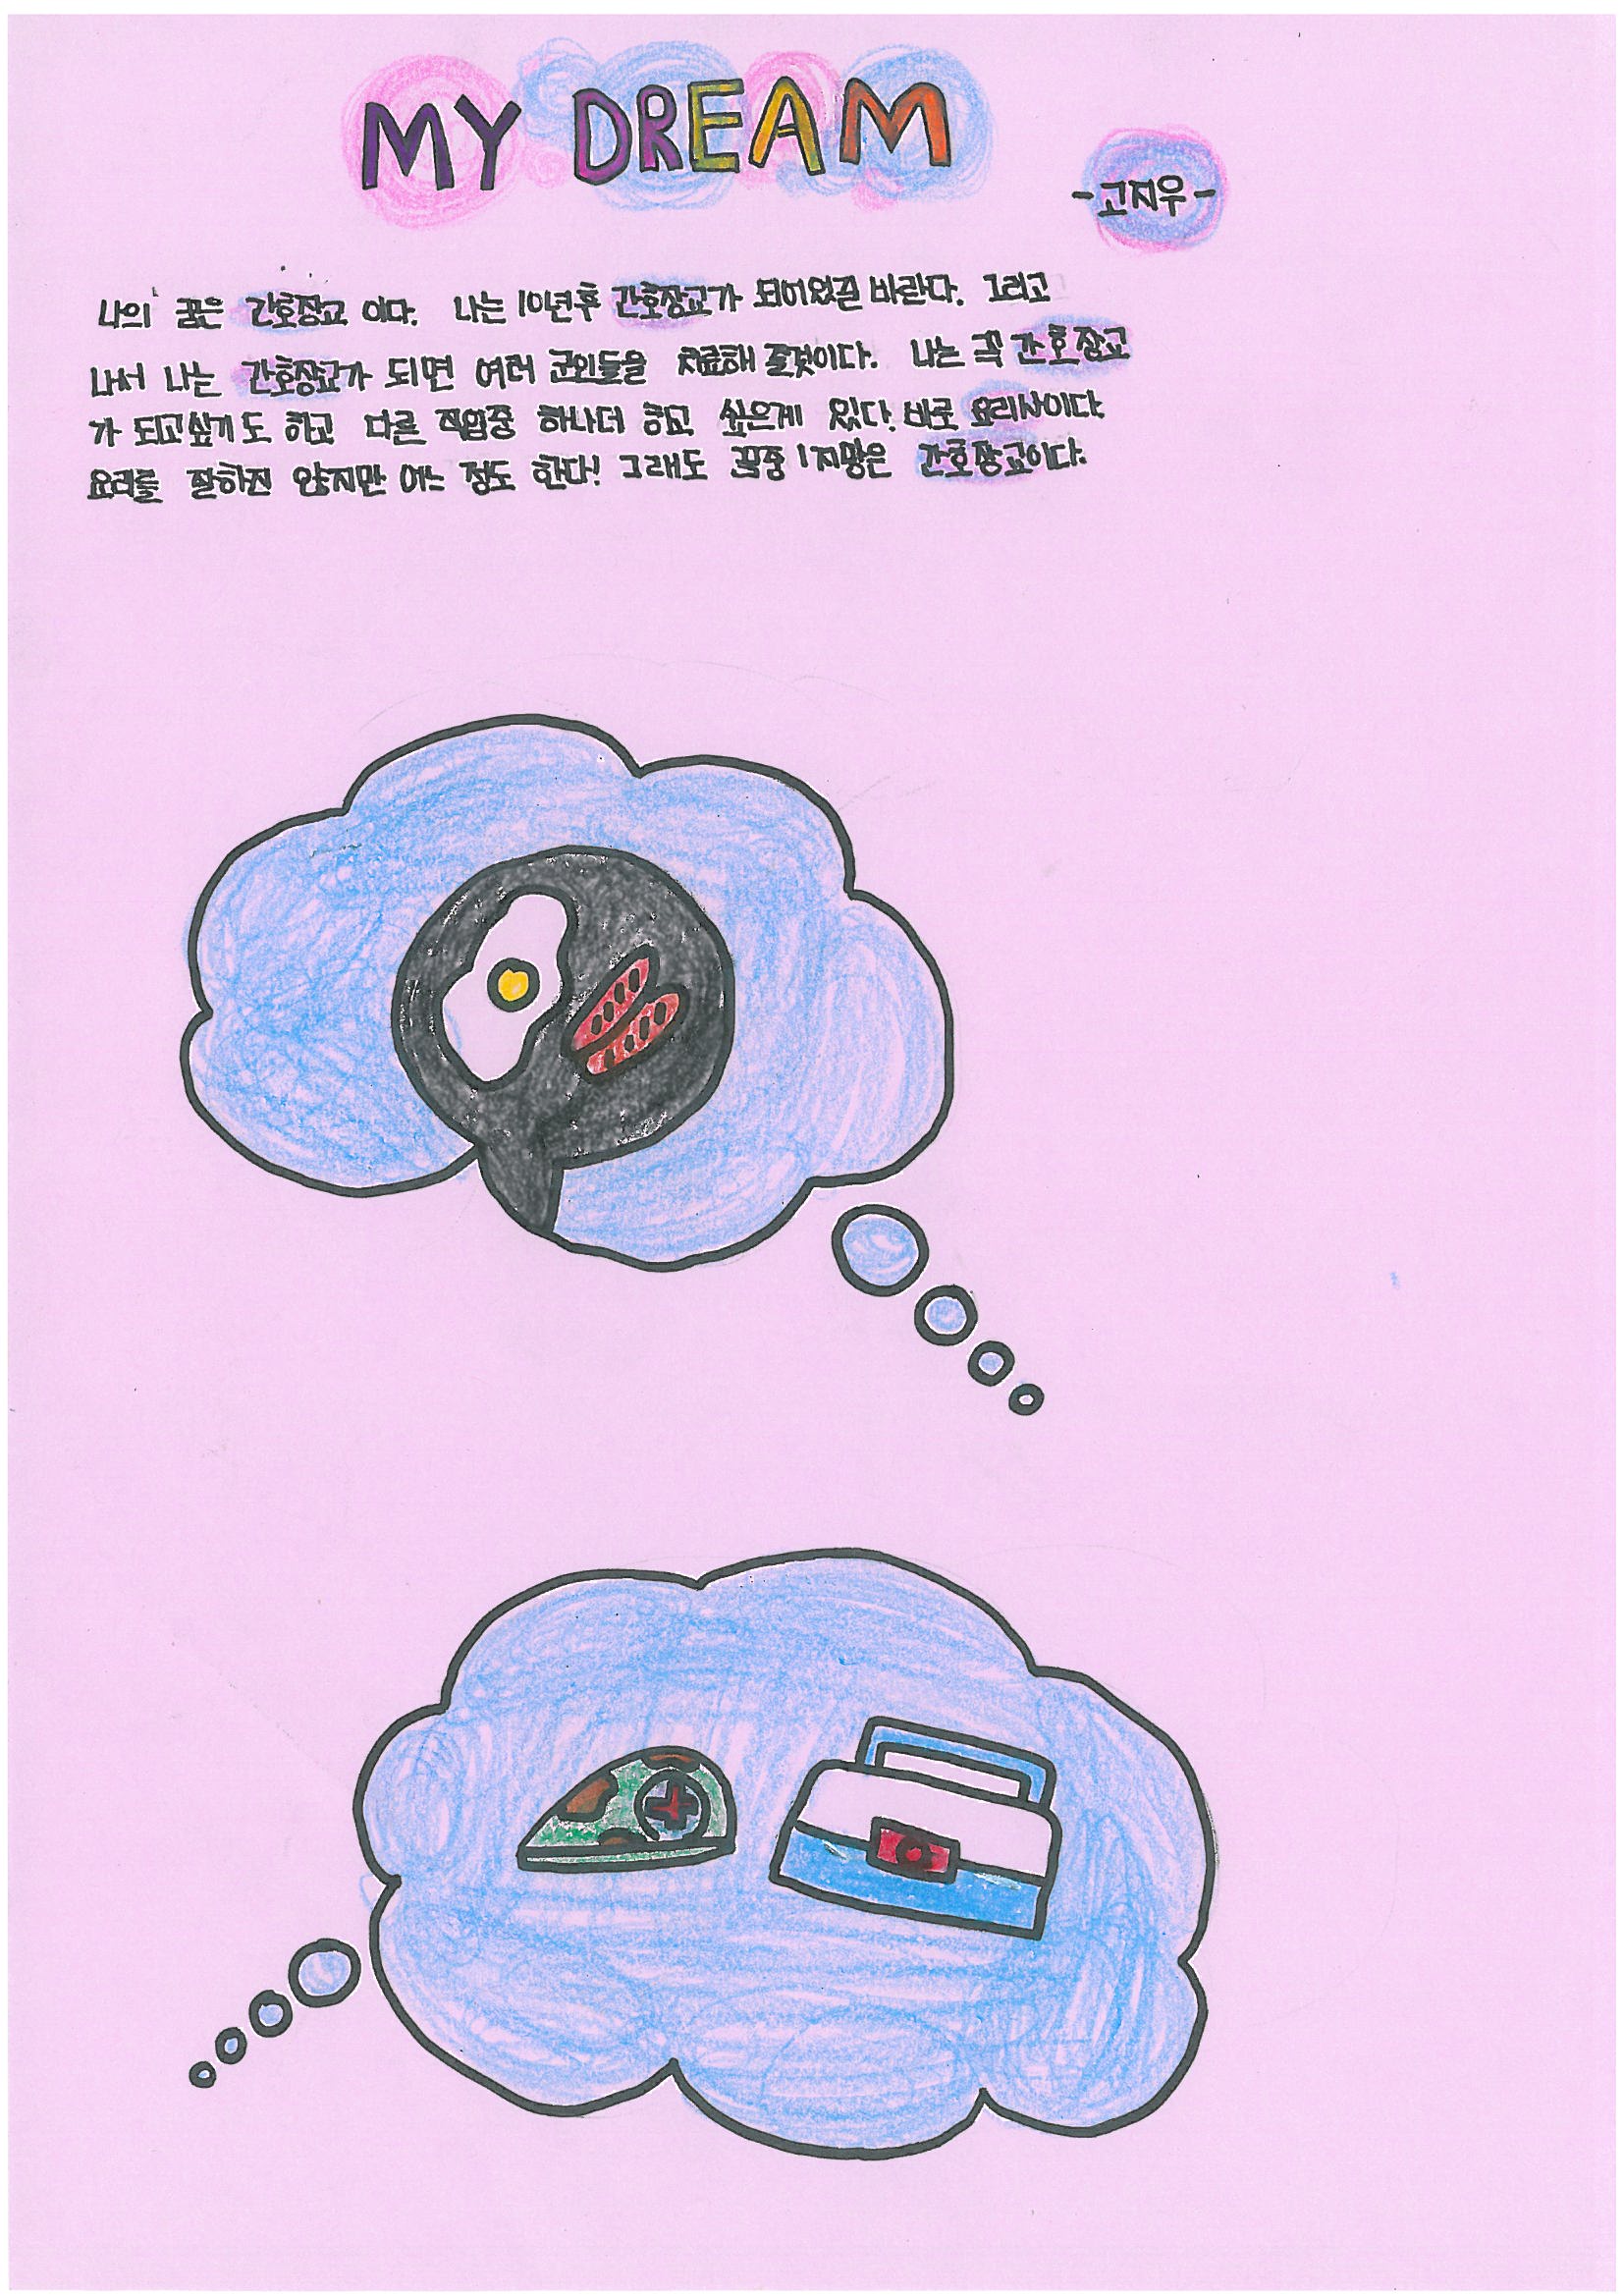 MY DREAM
-고지우-
나의 꿈은 간호장교 이다. 나는 10년후 간호장교가 되어있길 바란다. 그리고
나서 나는 간호장교가 되면 여러 군인들을 치료해 줄것이다. 나는 꼭 간호장교
가 되고싶기도 하고 다른 직업중 하나더 하고 싶은게 있다. 바로 요리사이다.
요리를 잘하진 않지만 어느 정도 한다! 그래도 꿈중 1지망은 간호장교이다.